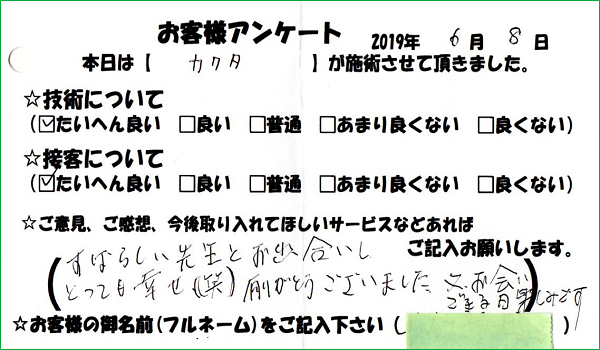 お客様アンケート 2019年 6月 8日
本日は【 カクタ 】が施術させて頂きました。
☆技術について
(☑たいへん良い □良い □普通 □あまり良くない □良くない)
☆接客について
(☑たいへん良い □良い □普通 □あまり良くない □良くない)
☆ご意見、ご感想、今後取り入れてほしいサービスなどあれば
ご記入お願いします。
(すばらしい先生とお出合いし
とっても幸せ(笑) ありがとうございました 又、お会い
できる日楽しみです)
☆お客様の御名前(フルネーム)をご記入下さい(